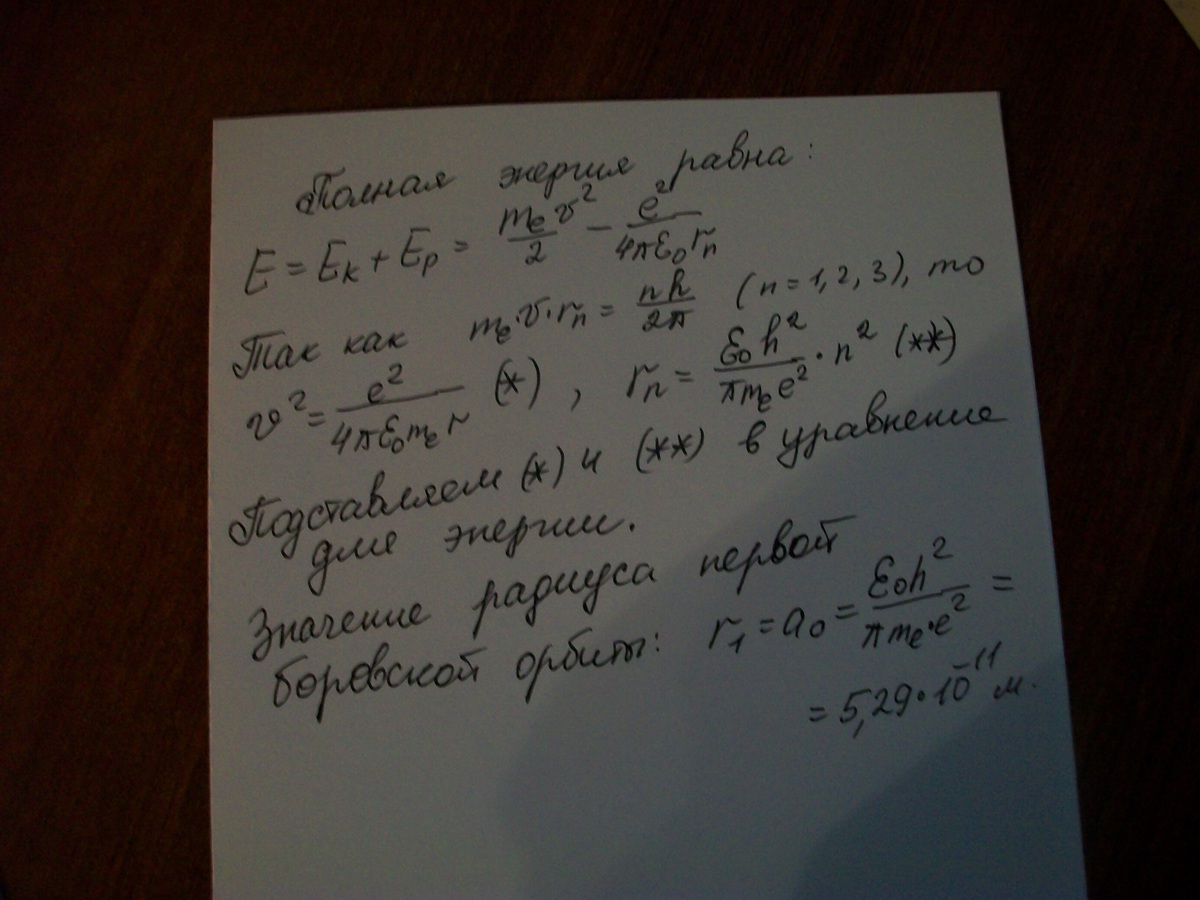 Полная энергия равна:
E = Eк + Ep = mₑv²/2 − e²/4πε₀rₙ
Так как mₑ·v·rₙ = nh/2π (n = 1, 2, 3), то
v² = e²/4πε₀mₑr (*), rₙ = ε₀h²/πmₑe² · n² (**)
Подставляем (*) и (**) в уравнение
для энергии.
Значение радиуса первой
боровской орбиты: r₁ = a₀ = ε₀h²/πmₑ·e² =
= 5,29·10⁻¹¹ м.